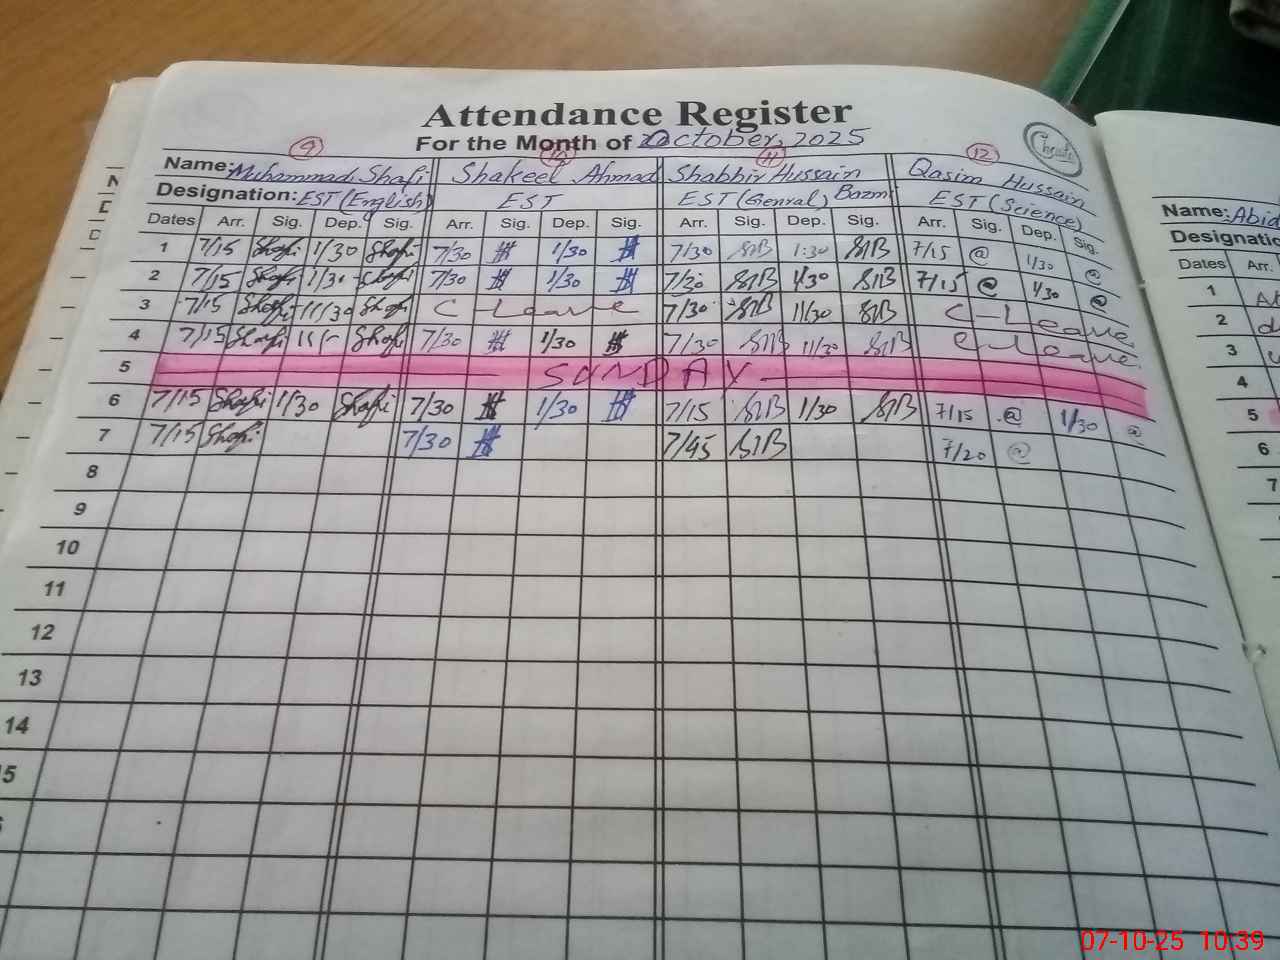 Attendance Register
For the Month of October, 2025
9 10 11 12
Name: Muhammad Shafi Shakeel Ahmad Shabbir Hussain Qasim Hussain
Designation: EST (English) EST EST (Genral) Bazmi EST (Science)
Dates Arr. Sig. Dep. Sig. Arr. Sig. Dep. Sig. Arr. Sig. Dep. Sig. Arr. Sig. Dep. Sig.
1 7/15 Shafi 1/30 Shafi 7/30 1/30 7/30 SHB 1:30 SHB 7/15 @ 1/30 @
2 7/15 Shafi 1/30 Shafi 7/30 1/30 SHB 1/30 SHB 7/15 @ 1/30 @
3 7/15 Shafi 11/30 Shafi C-Leave 7/30 SHB 11/30 SHB C-Leave
4 7/15 Shafi 11/- Shafi 7/30 1/30 7/30 SHB 11/30 SHB C-Leave
5 SUNDAY
6 7/15 Shafi 1/30 Shafi 7/30 1/30 7/15 SHB 1/30 SHB 7/15 @ 1/30 @
7 7/15 Shafi 7/30 7/45 SHB 7/20 @
8
9
10
11
12
13
14
Name: Abid
Dates Arr.
1
2
3
4
5
6
7
07-10-25 10:39